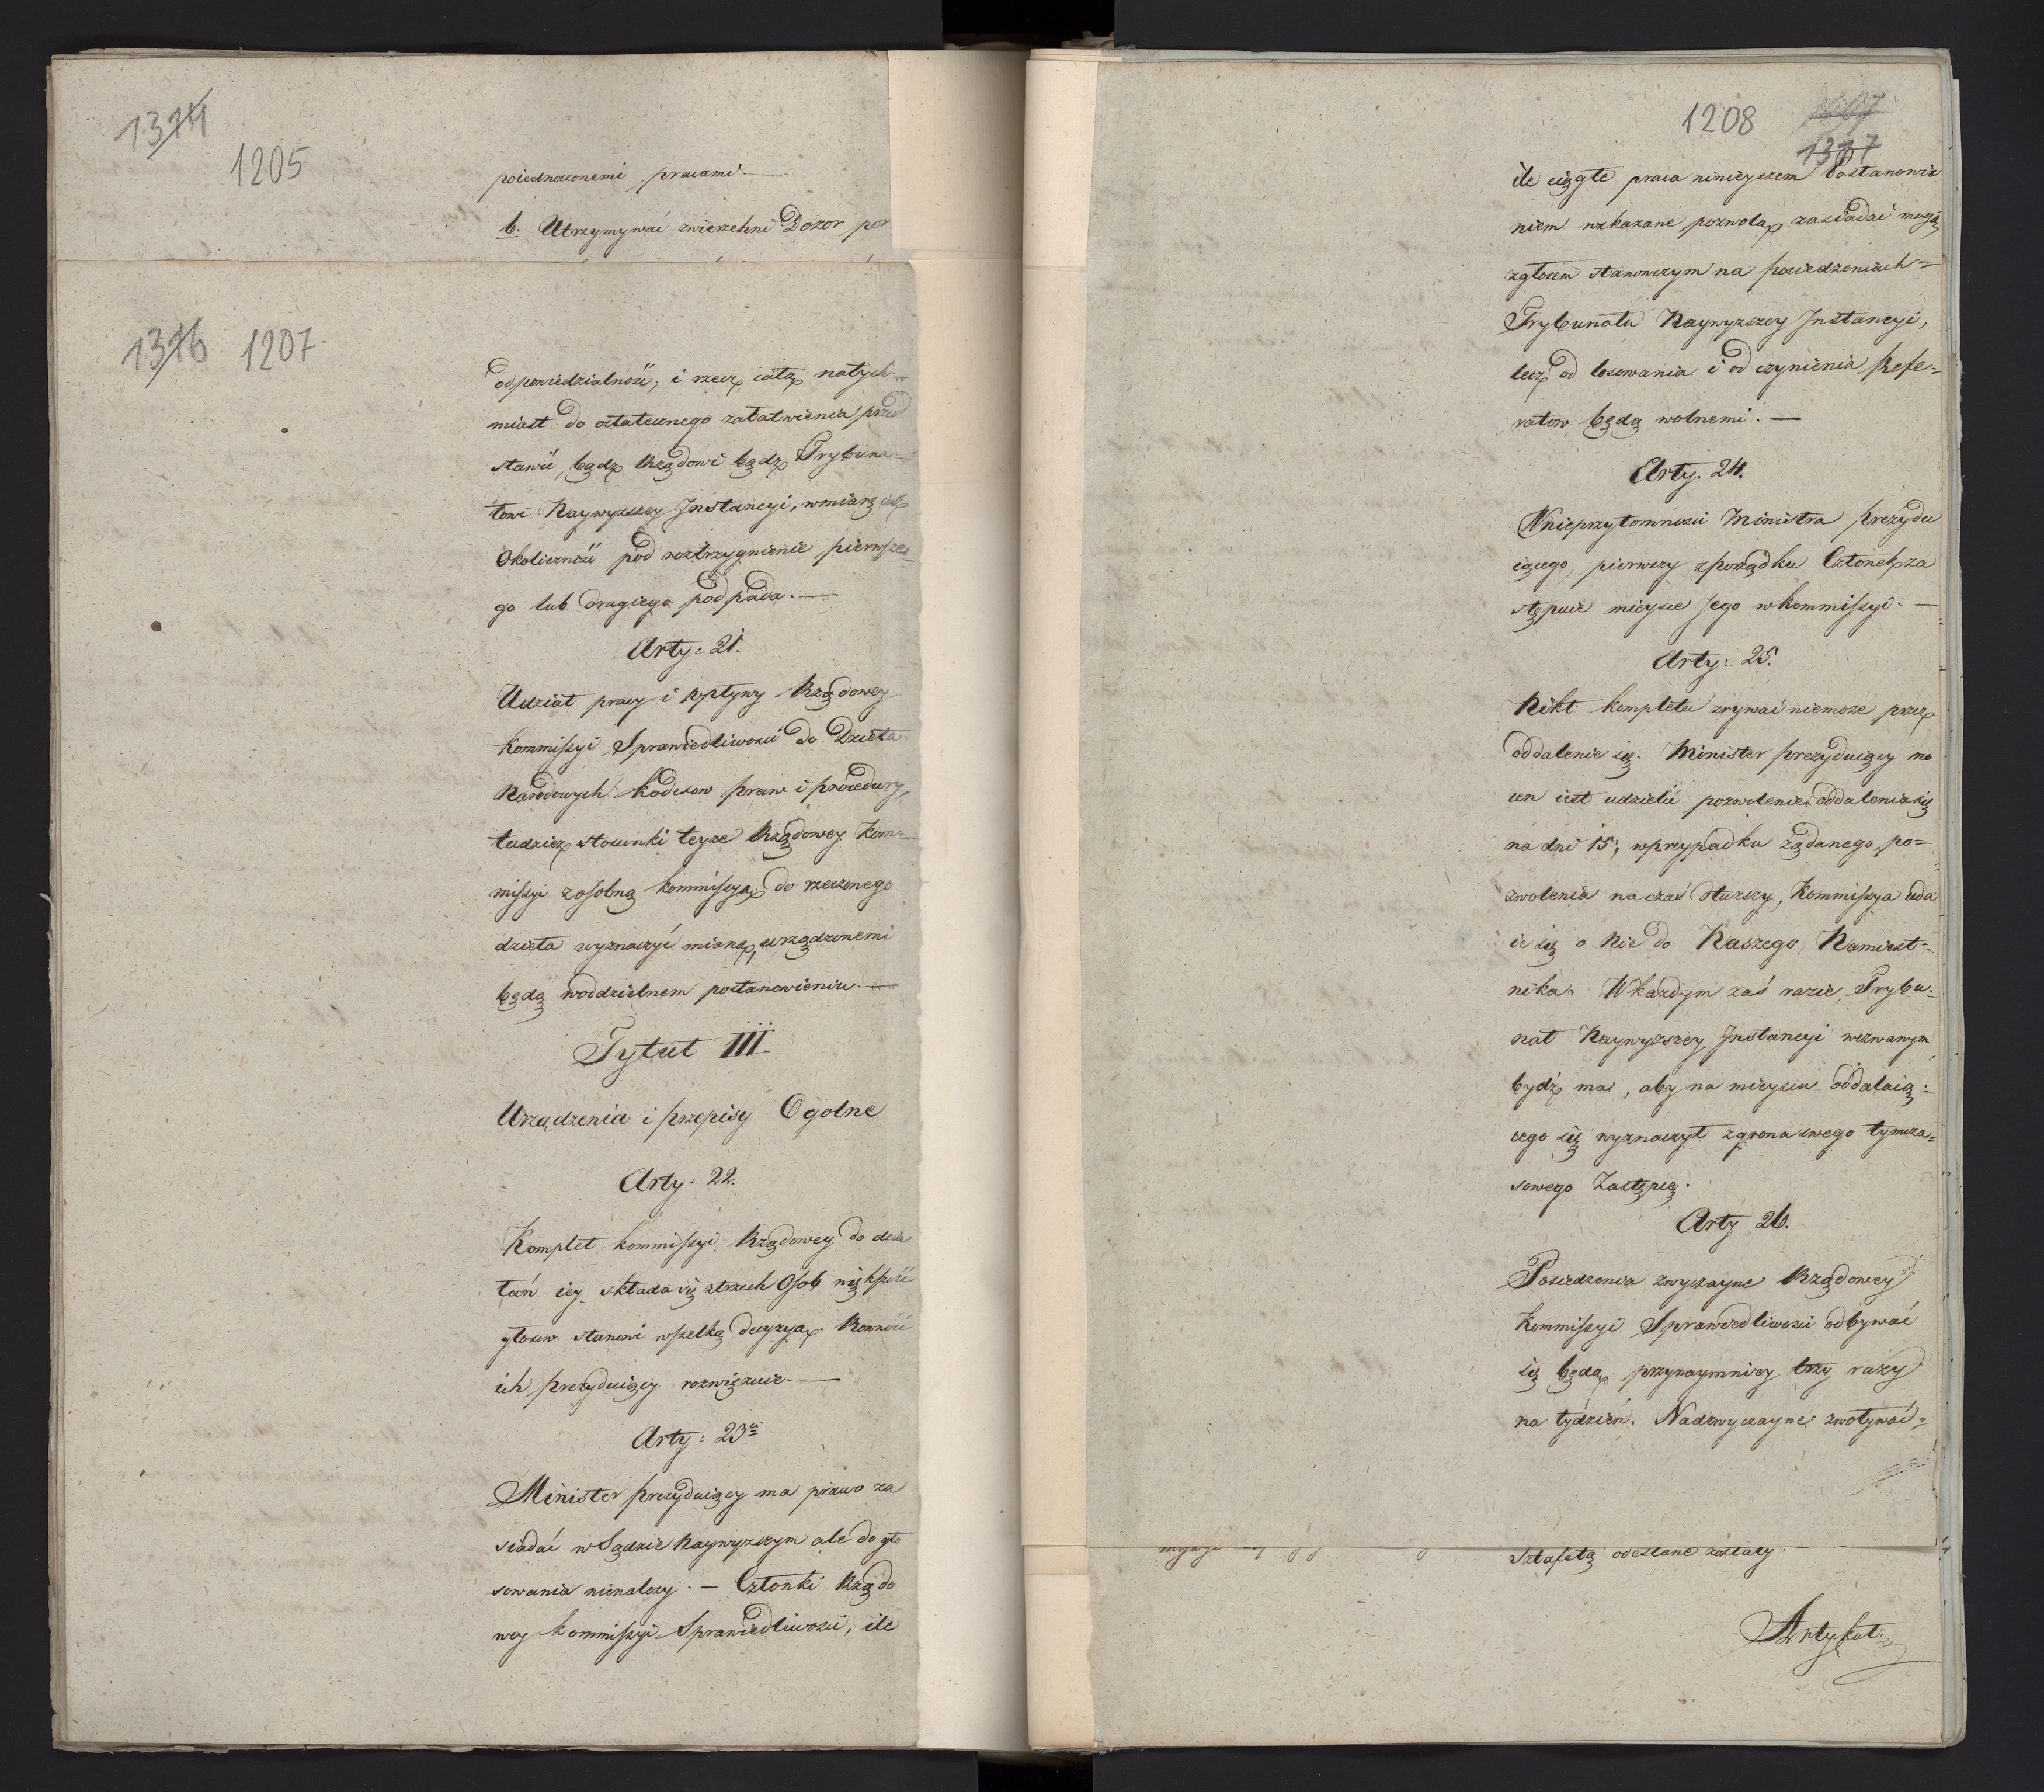 1314
1205
poiednawczemi pracami.—
b. Utrzymywać zwierzchni Dozor
1316 1207
odpowiedzialność, i rzecz całą natych=
miast do ostatecznego załatwienia przed
stawić, bądz Rządowi bądz Trybuna=
łowi Naywyzszey Instancyi, wmiarę iak
Okoliczność pod rostrzygnienie pierwsze=
go lub drugiego podpada.—
Arty: 21.
Udział pracy i wpływy Rządowey
Kommissyi Sprawiedliwosci do Dzieła
Narodowych Kodexow praw i procedury,
tudziez stosunki teyze Rządowey Kom=
missyi zosobną kommissyą do rzeczonego
dzieła wyznaczyć mianą, urządzonemi
będą woddzielnem postanowieniu.—
Tytuł III
Urządzenia i przepisy Ogolne
Arty: 22.
Komplet kommissyi Rządowey do dzia
łań iey składa się ztrzech Osob większość
głosow stanowi wszelką decyzyą. Rowność
ich prezyduiący rozwiązuie.—
Arty: 23ci
Minister prezyduiący ma prawo za
siadać w Sądzie Naywyzszym ale do gło
sowania nienalezy.— Członki Rządo
wey Kommissyi Sprawiedliwosci, ile
1208
1317
ile ciągłe praca ninieyszem Postanowie
niem wskazane pozwolą, zasiadać mogą
zgłosem stanowczym na posiedzeniach=
Trybunału Naywyzszey Instancyi,
lecz od losowania i od czynienia Refe=
ratow będą wolnemi.—
Arty. 24.
Wnieprzytomnosci Ministra prezydu
iącego, pierwszy zporządku Członek za
stępuie mieysce Jego w kommissyi.—
Arty: 25.
Nikt kompletu zrywać niemoze przez
oddalenie się. Minister prezyduiący mo
cen iest udzielić pozwolenie oddalenia się
na dni 15, wprzypadku żądanego po=
zwolenia na czas dłuzszy, Kommissya uda
ie się o Nie do Naszego Namiest=
nika. Wkazdym zaś razie Trybu=
nał Naywyzszey Instancyi wezwanym
bydź ma, aby na mieyscu oddalaią=
cego się wyznaczył zgrona swego tymcza=
sowego Zastępcę.
Arty 26.
Posiedzenia zwyczayne Rządowey
Kommissyi Sprawiedliwosci odbywać
się będą, przynaymniey trzy razy
na tydzień. Nadzwyczayne zwoływać=
Sztafetą odesłane zostały.
Artykuł.